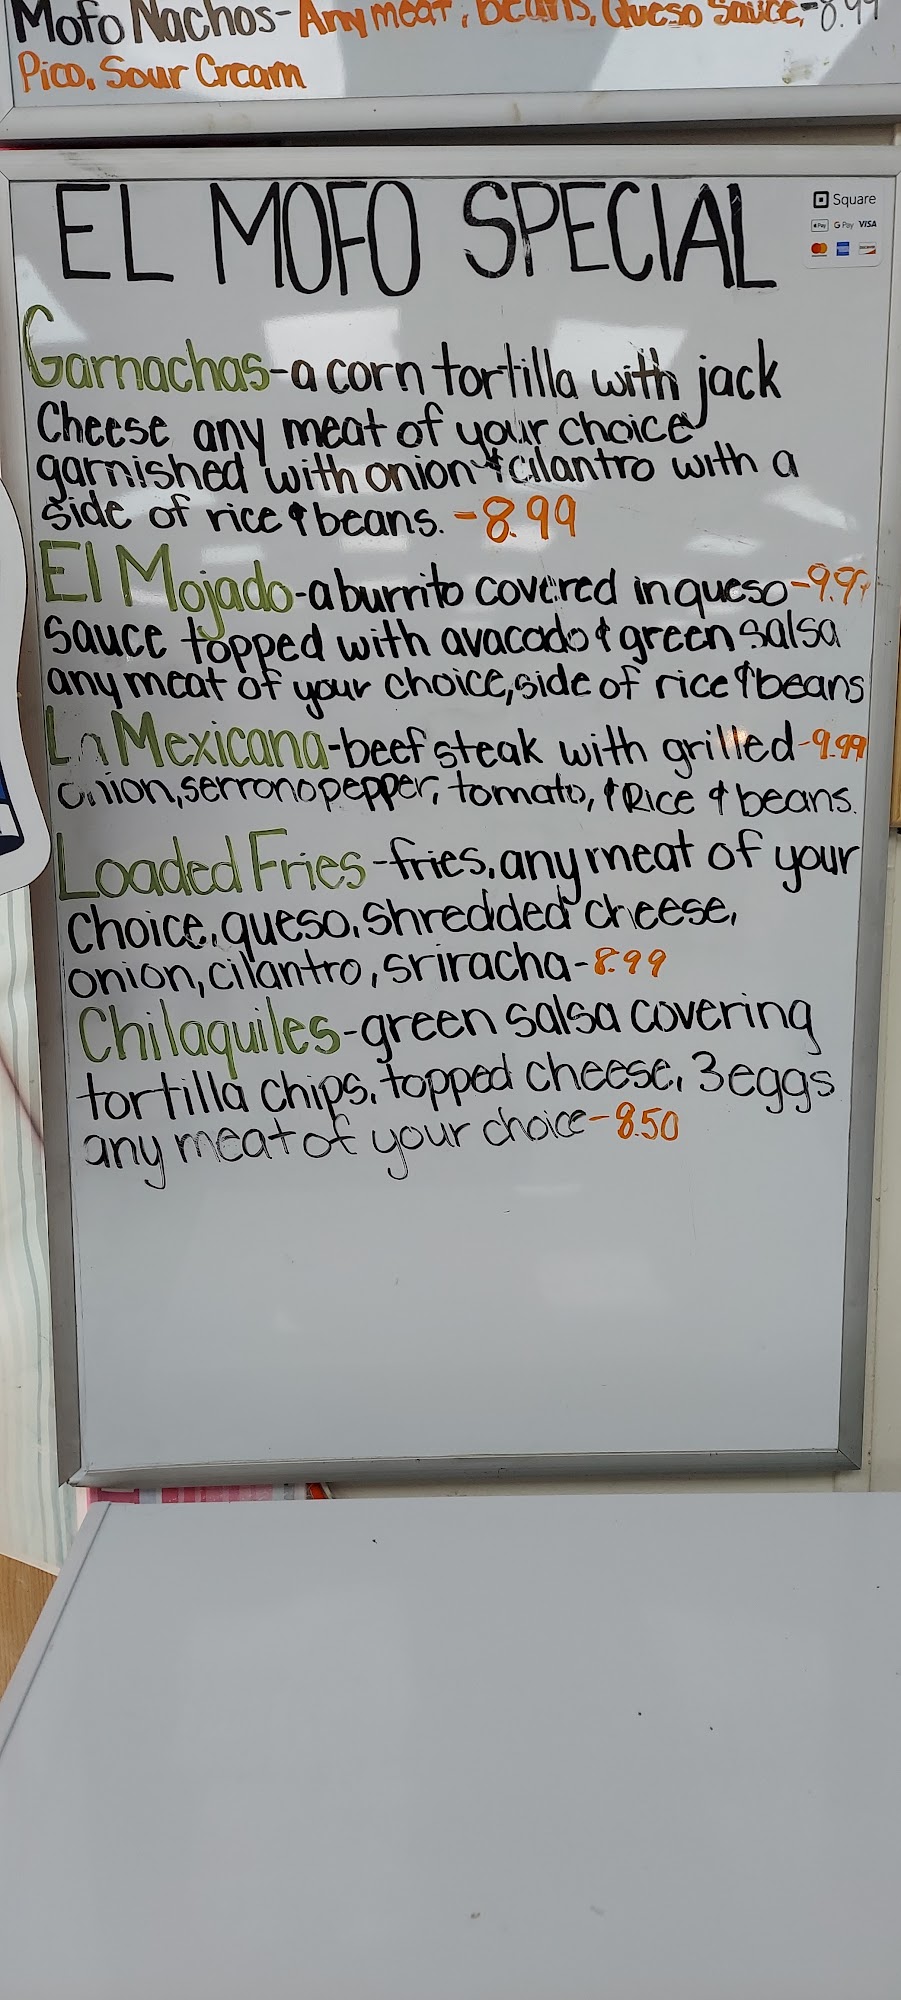 Mofo Nachos- Any meat, Beans, Queso Sauce,-8.99
Pico, Sour Cream
EL MOFO SPECIAL
Square
Pay G Pay VISA
Garnachas-a corn tortilla with jack
Cheese any meat of your choice
garnished with onion & cilantro with a
side of rice & beans. -8.99
El Mojado-a burrito covered in queso-9.99
sauce topped with avacado & green salsa
any meat of your choice, side of rice & beans
La Mexicana-beef steak with grilled-9.99
onion, serrono pepper, tomato, & Rice & beans.
Loaded Fries-fries, any meat of your
Choice, queso, shredded cheese,
onion, cilantro, sriracha-8.99
Chilaquiles-green salsa covering
tortilla chips, topped cheese, 3 eggs
any meat of your choice-8.50